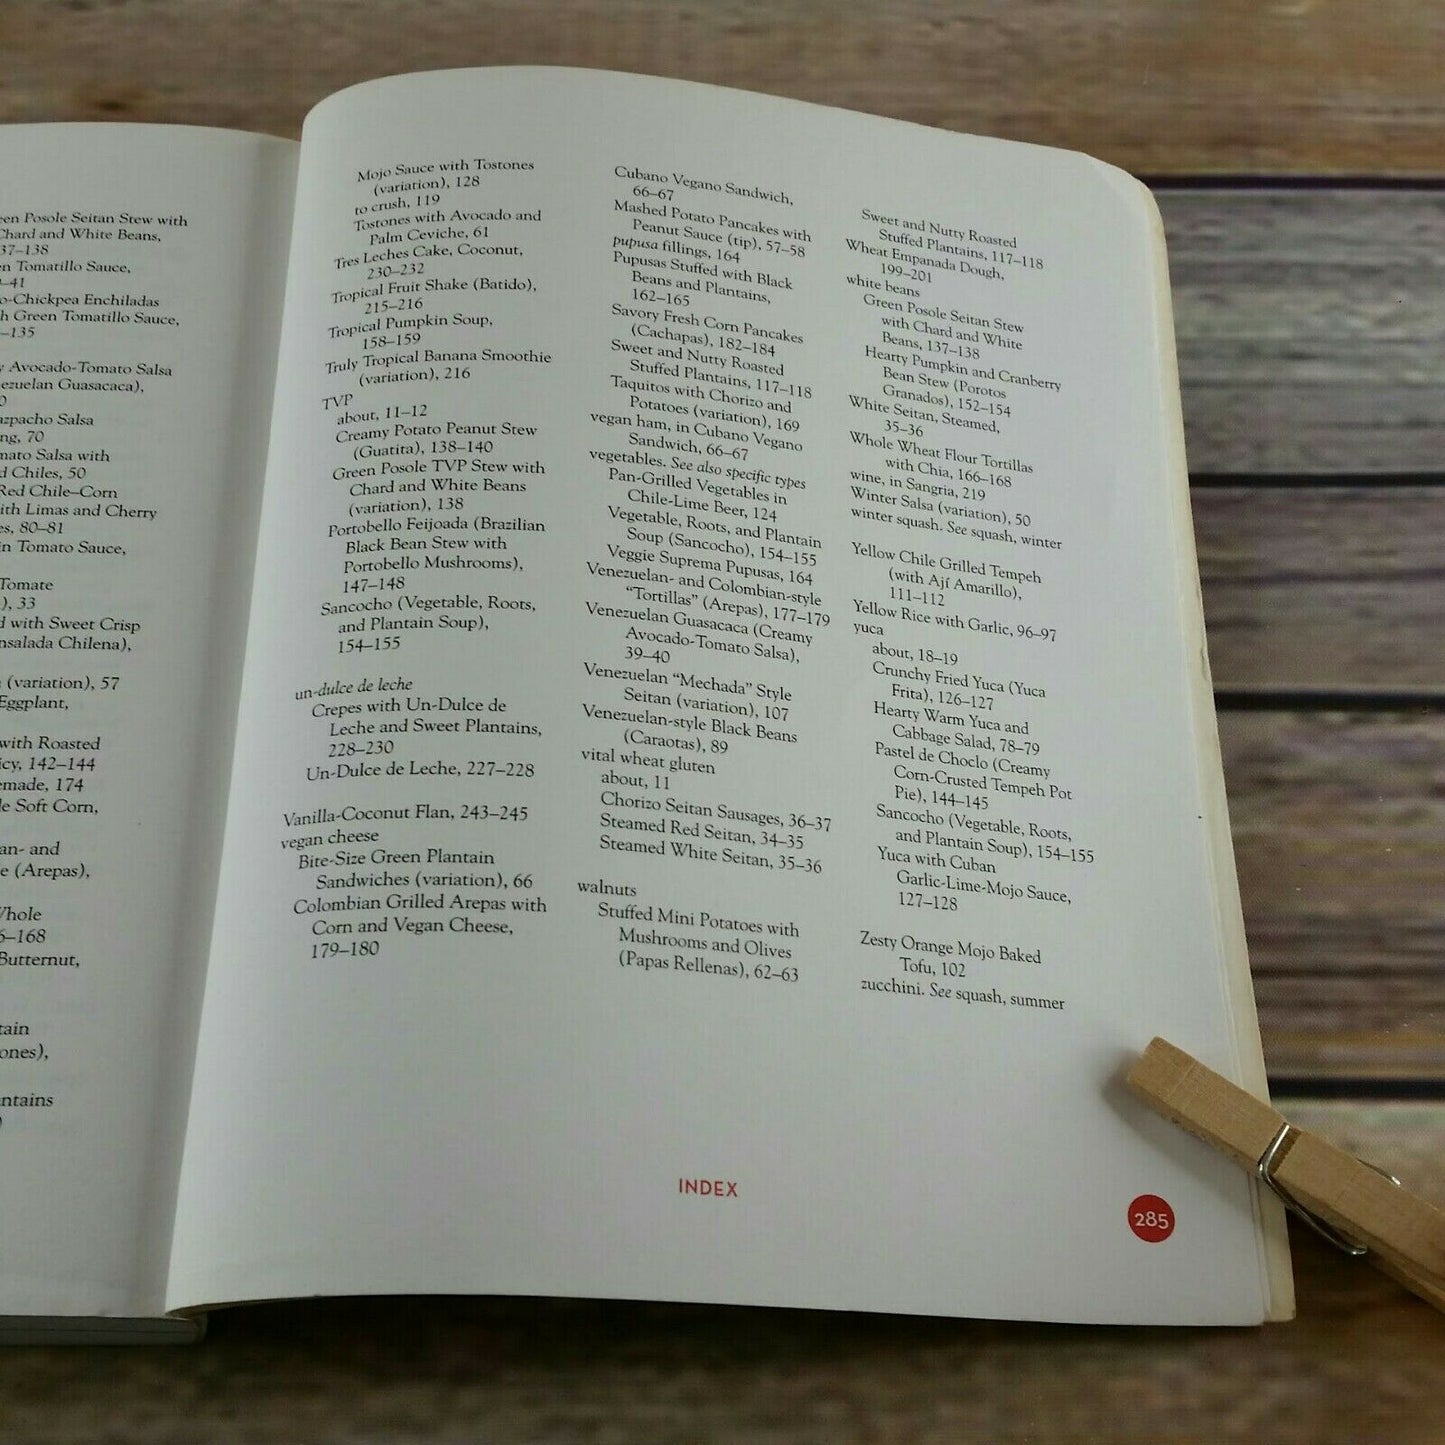 een Posole Seitan Stew with
Chard and White Beans,
37–138
en Tomatillo Sauce,
–41
o-Chickpea Enchiladas
h Green Tomatillo Sauce,
–135
y Avocado-Tomato Salsa
ezuelan Guasacaca),
0
azpacho Salsa
ng, 70
mato Salsa with
d Chiles, 50
Red Chile–Corn
ith Limas and Cherry
es, 80–81
in Tomato Sauce,
Tomate
), 33
d with Sweet Crisp
nsalada Chilena),
(variation), 57
Eggplant,
with Roasted
icy, 142–144
emade, 174
le Soft Corn,
an- and
e (Arepas),
Whole
6–168
Butternut,
tain
ones),
ntains
)
Mojo Sauce with Tostones
(variation), 128
to crush, 119
Tostones with Avocado and
Palm Ceviche, 61
Tres Leches Cake, Coconut,
230–232
Tropical Fruit Shake (Batido),
215–216
Tropical Pumpkin Soup,
158–159
Truly Tropical Banana Smoothie
(variation), 216
TVP
about, 11–12
Creamy Potato Peanut Stew
(Guatita), 138–140
Green Posole TVP Stew with
Chard and White Beans
(variation), 138
Portobello Feijoada (Brazilian
Black Bean Stew with
Portobello Mushrooms),
147–148
Sancocho (Vegetable, Roots,
and Plantain Soup),
154–155
un-dulce de leche
Crepes with Un-Dulce de
Leche and Sweet Plantains,
228–230
Un-Dulce de Leche, 227–228
Vanilla-Coconut Flan, 243–245
vegan cheese
Bite-Size Green Plantain
Sandwiches (variation), 66
Colombian Grilled Arepas with
Corn and Vegan Cheese,
179–180
Cubano Vegano Sandwich,
66–67
Mashed Potato Pancakes with
Peanut Sauce (tip), 57–58
pupusa fillings, 164
Pupusas Stuffed with Black
Beans and Plantains,
162–165
Savory Fresh Corn Pancakes
(Cachapas), 182–184
Sweet and Nutty Roasted
Stuffed Plantains, 117–118
Taquitos with Chorizo and
Potatoes (variation), 169
vegan ham, in Cubano Vegano
Sandwich, 66–67
vegetables. See also specific types
Pan-Grilled Vegetables in
Chile-Lime Beer, 124
Vegetable, Roots, and Plantain
Soup (Sancocho), 154–155
Veggie Suprema Pupusas, 164
Venezuelan- and Colombian-style
“Tortillas” (Arepas), 177–179
Venezuelan Guasacaca (Creamy
Avocado-Tomato Salsa),
39–40
Venezuelan “Mechada” Style
Seitan (variation), 107
Venezuelan-style Black Beans
(Caraotas), 89
vital wheat gluten
about, 11
Chorizo Seitan Sausages, 36–37
Steamed Red Seitan, 34–35
Steamed White Seitan, 35–36
walnuts
Stuffed Mini Potatoes with
Mushrooms and Olives
(Papas Rellenas), 62–63
Sweet and Nutty Roasted
Stuffed Plantains, 117–118
Wheat Empanada Dough,
199–201
white beans
Green Posole Seitan Stew
with Chard and White
Beans, 137–138
Hearty Pumpkin and Cranberry
Bean Stew (Porotos
Granados), 152–154
White Seitan, Steamed,
35–36
Whole Wheat Flour Tortillas
with Chia, 166–168
wine, in Sangria, 219
Winter Salsa (variation), 50
winter squash. See squash, winter
Yellow Chile Grilled Tempeh
(with Ají Amarillo),
111–112
Yellow Rice with Garlic, 96–97
yuca
about, 18–19
Crunchy Fried Yuca (Yuca
Frita), 126–127
Hearty Warm Yuca and
Cabbage Salad, 78–79
Pastel de Choclo (Creamy
Corn-Crusted Tempeh Pot
Pie), 144–145
Sancocho (Vegetable, Roots,
and Plantain Soup), 154–155
Yuca with Cuban
Garlic-Lime-Mojo Sauce,
127–128
Zesty Orange Mojo Baked
Tofu, 102
zucchini. See squash, summer
INDEX
285